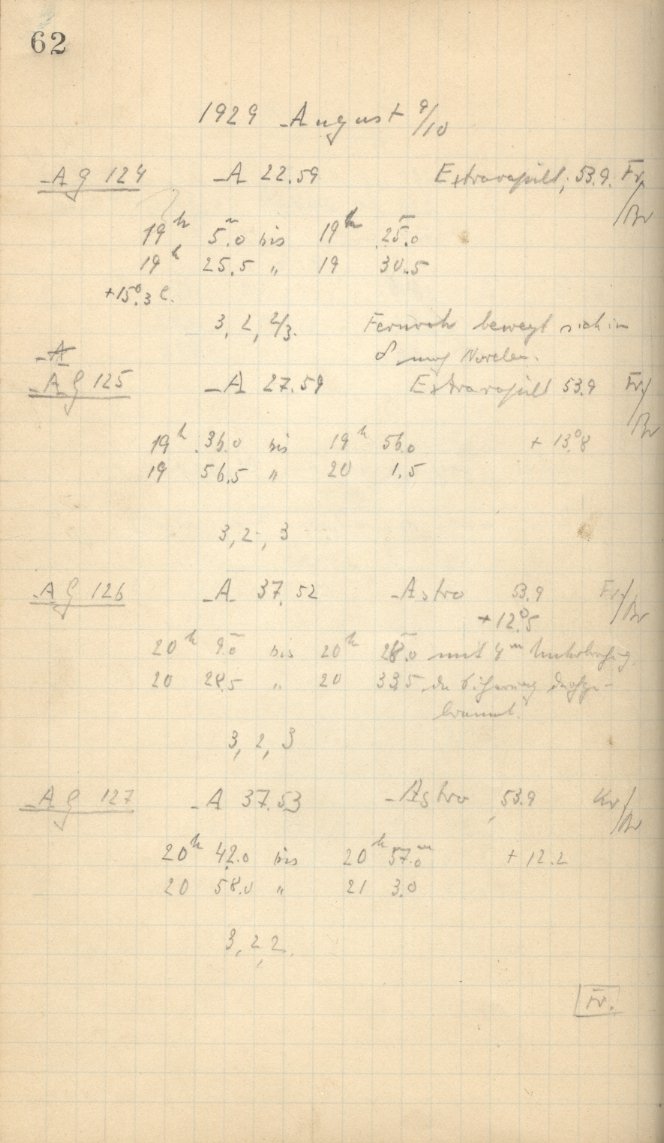 62
1929 August 9/10
AG 124 A 22.59 Extrarapid, 53.9. Fr/Br
19h 5m.0 bis 19h 25m.0
19h 25.5 " 19 30.5
+15°.3 C.
3, 2, 2/3. Fernrohr bewegt sich in
δ nach Norden.
A
AG 125 A 27.59 Extrarapid 53.9 Fr/Br
19h 36.0 bis 19h 56.0 +13°.8
19 56.5 " 20 1.5
3, 2, 3
AG 126 A 37.52 Astro 53.9 Fr/Br
+12°.5
20h 9m.0 bis 20h 28m.0 mit 4m Unterbrechung
20 28.5 " 20 33.5, da Sicherung durchge-
brannt.
3, 2, 3
AG 127 A 37.53 Astro, 53.9 Kr/Br
20h 42.0 bis 20h 57m.0 +12.2
20 58.0 " 21 3.0
3, 2, 2.
Fr.